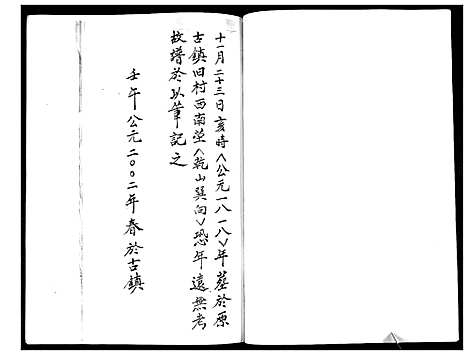 十一月二十三日亥時<公元一八一八>年葬於原
古鎮旧村西南塋<乾山巽向>恐年遠無考
故譜於以筆記之
壬午公元二〇〇二年春於古鎮